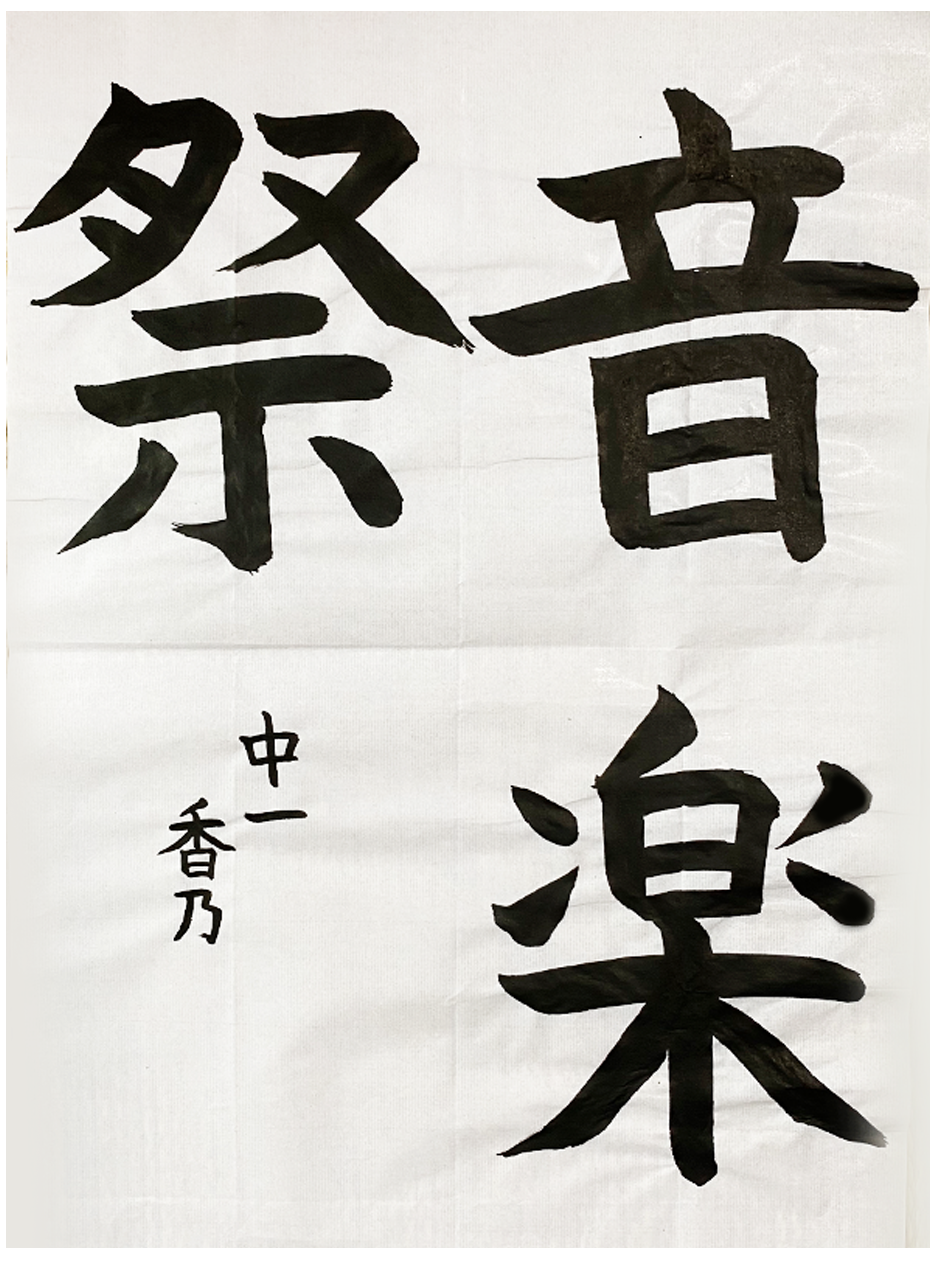 音楽
祭
中一
香乃